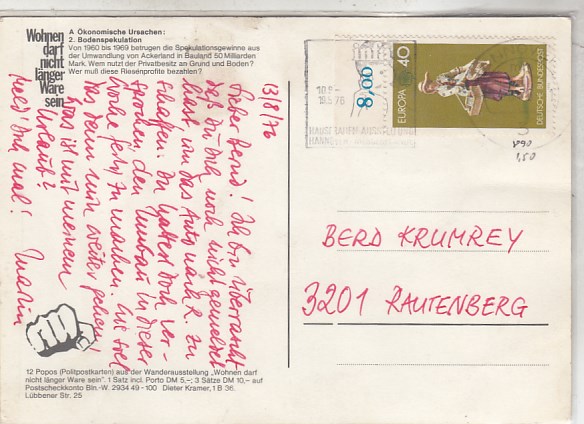 Wohnen
darf
nicht
länger
Ware
sein
A Ökonomische Ursachen:
2. Bodenspekulation
Von 1960 bis 1969 betrugen die Spekulationsgewinne aus
der Umwandlung von Ackerland in Bauland 50 Milliarden
Mark. Wem nutzt der Privatbesitz an Grund und Boden?
Wer muß diese Riesenprofite bezahlen?
13/8/76
Lieber Bernd! Ich bin überrascht
daß Du Dich noch nicht gemeldet
hast um das Auto nach R. zu
schaffen. Du hattest doch ver-
sprochen, den Umbau in dieser
Woche fertig zu machen. Wie soll
das denn nun weiter gehen!
Was ist mit meinem
Urlaub?
Meld' Dich mal!
Martin
12 Popos (Politpostkarten) aus der Wanderausstellung „Wohnen darf
nicht länger Ware sein". 1 Satz incl. Porto DM 5,–; 3 Sätze DM 10,– auf
Postscheckkonto Bln.-W. 2934 49 - 100 Dieter Kramer, 1 B 36,
Lübbener Str. 25
8,00
EUROPA 40
DEUTSCHE BUNDESPOST
HANNOVER
V90
1,50
BERD KRUMREY
3201 RAUTENBERG